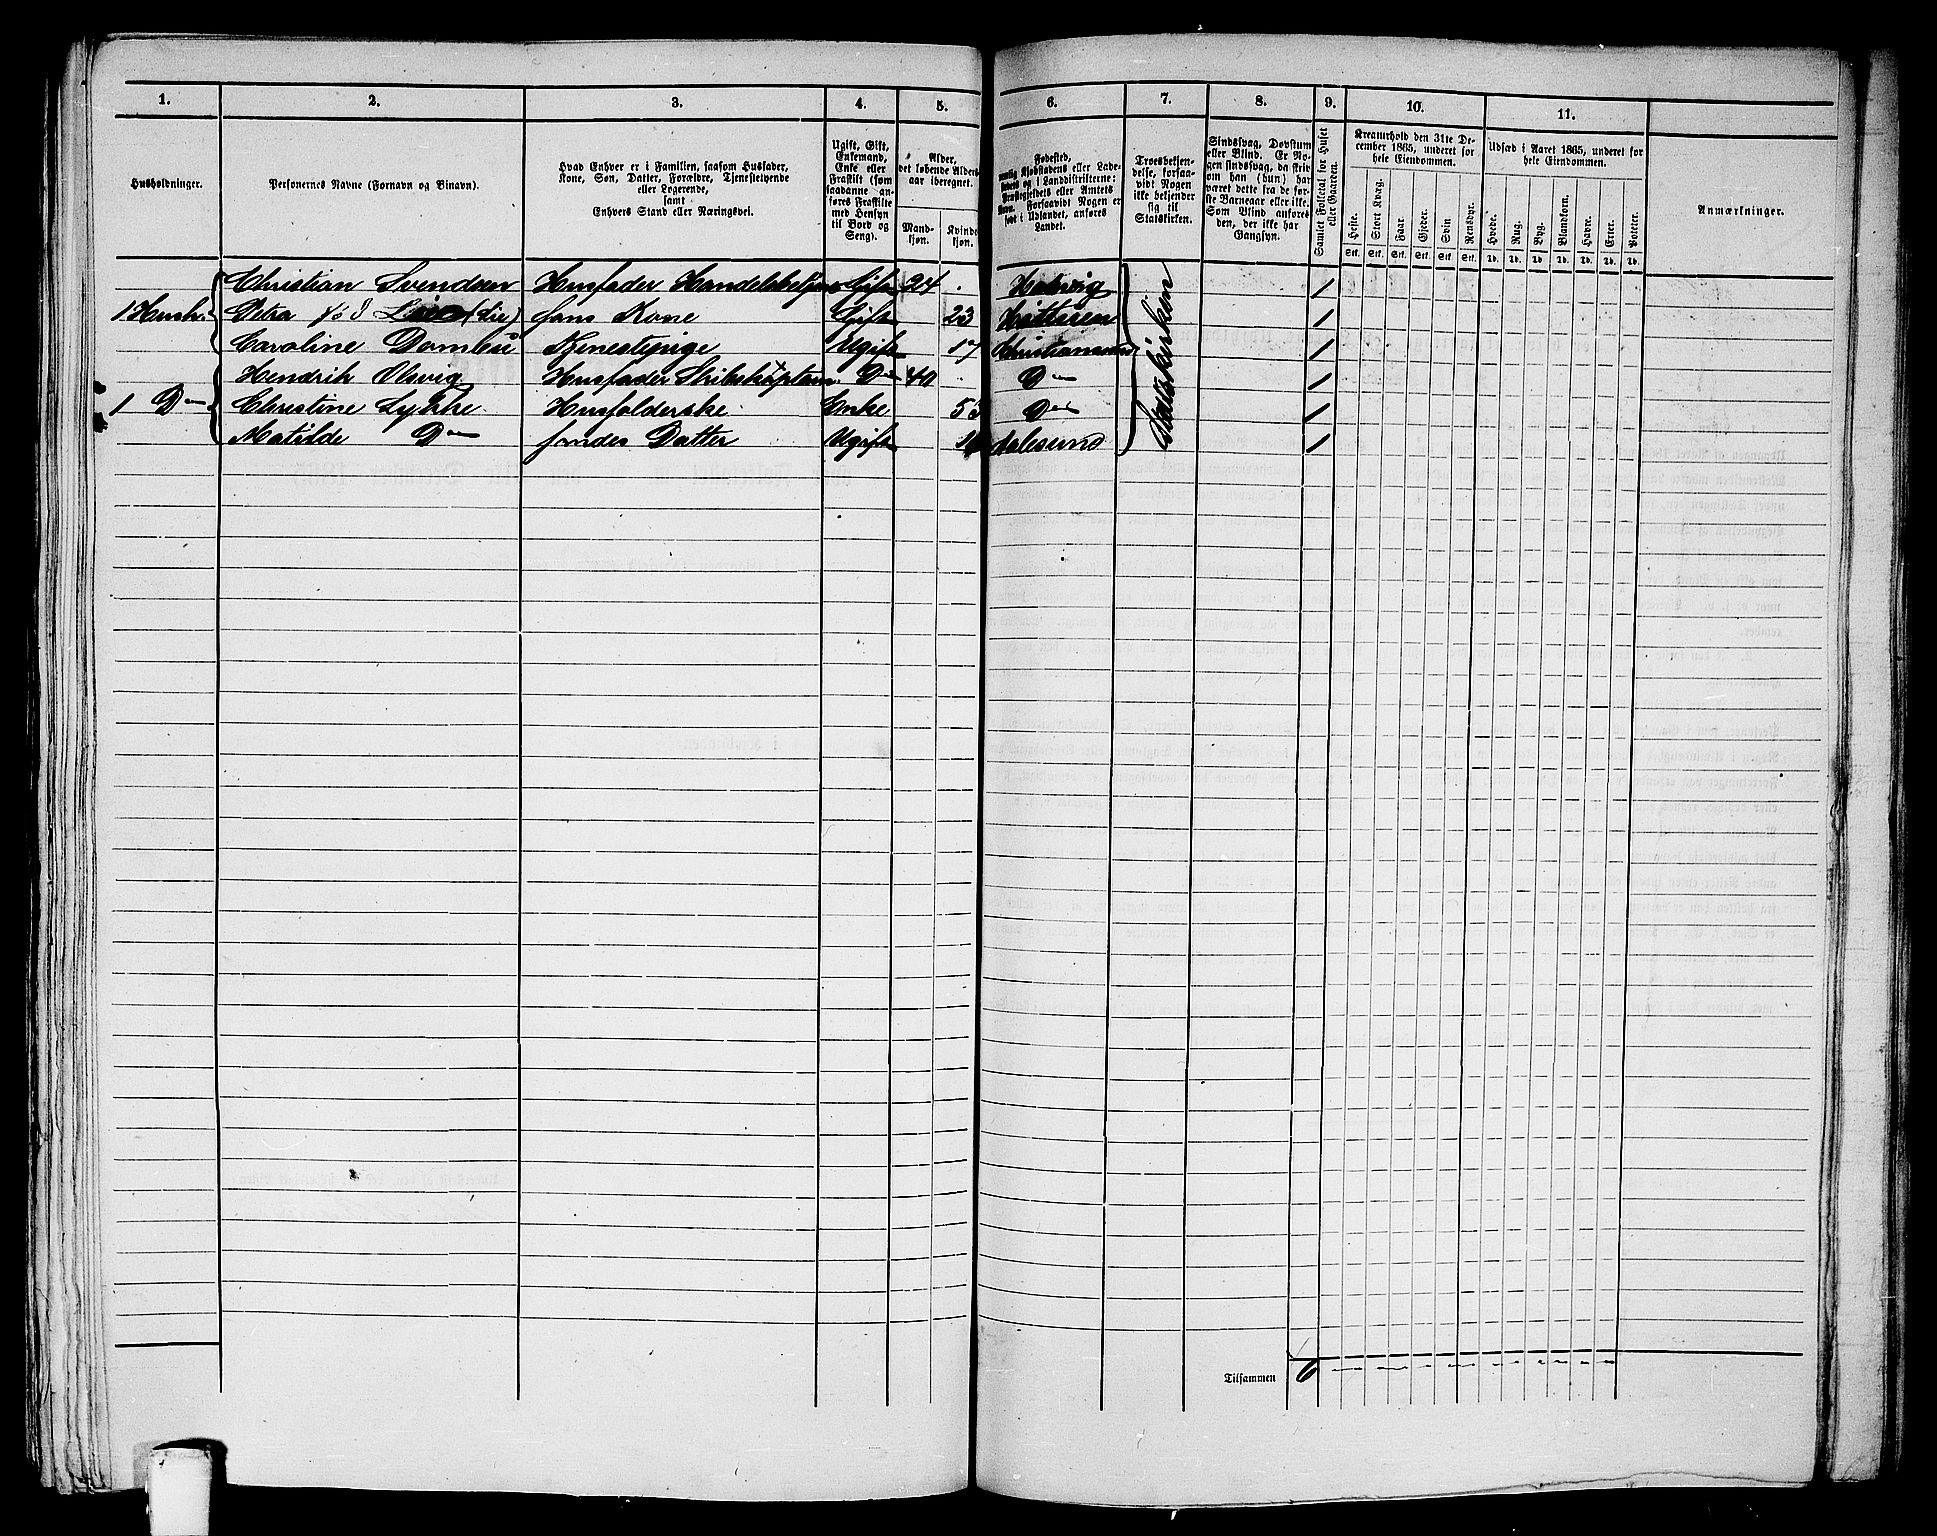 1. 2. 3. 4. 5. 6. 7. 8. 9. 10. 11.
Husholdninger.
Personernes Navne (Fornavn og Binavn).
Hvad Enhver er i Familien, saasom Husfader,
Kone, Søn, Datter, Forældre, Tjenestetyende
eller Logerende,
samt
Enhvers Stand eller Næringsvei.
Ugift, Gift,
Enkemand,
Enke eller
Fraskilt (som
saadanne an-
føres Fraskilte
med Hensyn
til Bord og
Seng).
Alder,
det løbende Alders-
aar iberegnet.
Mand-
kjøn.
Kvinde-
kjøn.
Fødested,
Kjøbstadens eller Lade-
og i Landdistrikterne:
Præstegjeldets eller Amtets
Navn. Forsaavidt Nogen er
født i Udlandet, anføres
Landet.
Troesbekjen-
delse, forsaa-
vidt Nogen
ikke bekjender
sig til
Statskirken.
Sindssvag, Døvstum
eller Blind. Er No-
gen sindssvag, da skriv
om han (hun) har
været dette fra de før-
ste Barneaar eller ikke.
Som Blind anføres
den, der ikke har
Gangsyn.
Samlet Folketal for Huset
eller Gaarden.
Kreaturhold den 31te De-
cember 1865, underet for
hele Eiendommen.
Heste. Stort Kvæg. Faar. Gjeder. Svin. Rensdyr.
Stk. Stk. Stk. Stk. Stk. Stk.
Udsæd i Aaret 1865, underet for
hele Eiendommen.
Hvede. Rug. Byg. Blandkorn. Havre. Erter. Poteter.
Td. Td. Td. Td. Td. Td. Td.
Anmærkninger.
Christian Svendsen Husfader Gift 24 1
1 Hush. Petra fød (Lie) hans Kone Gift 23 Hitteren 1
Caroline Tjenestepige Ugift 17 Christianssund 1
Hendrik Olsvig Husfader Skibskaptain Do 40 Do 1
1 Do Christine Lykke Husholderske Enke 53 Do 1
Matilde Do hendes Datter Ugift Aalesund 1
Statskirken
Tilsammen 6